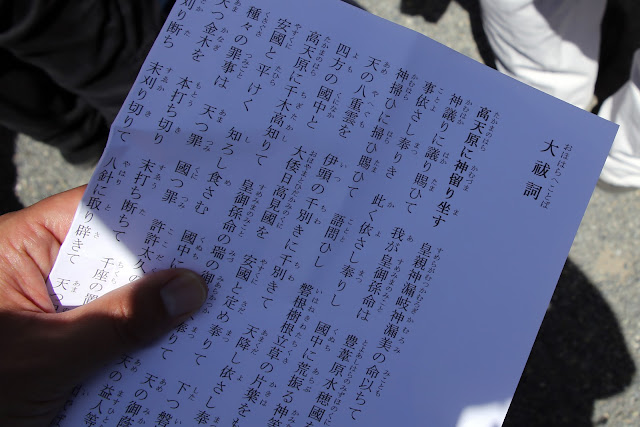 大祓詞
高天原に神留り坐す 皇親神漏岐神漏美の命以ちて
神議りに議り賜ひて 我が皇御孫命は 豊葦原水穂國を
事依さし奉りき 此く依さし奉りし 國中に荒振る神等
神掃ひに掃ひ賜ひて 語問ひし 磐根樹根立草の片葉をも
天の八重雲を 伊頭の千別きに千別きて 天降し依さし奉
四方の國中と 大倭日高見國を 安國と定め奉りて 下つ磐
高天原に千木高知りて 皇御孫命の瑞の御 奉りて 天の御蔭
安國と平けく 知ろし食さむ 國中に の益人等
種々の罪事は 天つ罪 國つ罪 許許太久の
天つ金木を 本打ち切り 末打ち断ちて 千座の置
刈り断ち 末刈り切りて 八針に取り辟きて 天つ